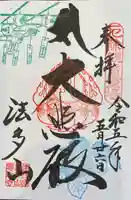 奉拝
令和五年
五月廿六日
大悲殿
法多山